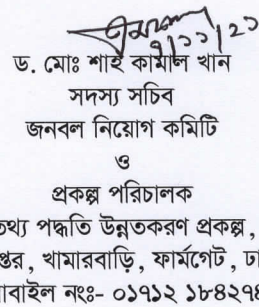 ৭/১১/২১
ড. মোঃ শাহ কামাল খান
সদস্য সচিব
জনবল নিয়োগ কমিটি
ও
প্রকল্প পরিচালক
তথ্য পদ্ধতি উন্নতকরণ প্রকল্প,
প্তর, খামারবাড়ি, ফার্মগেট, ঢা
বাইল নংঃ- ০১৭১২ ১৮৪২৭৪